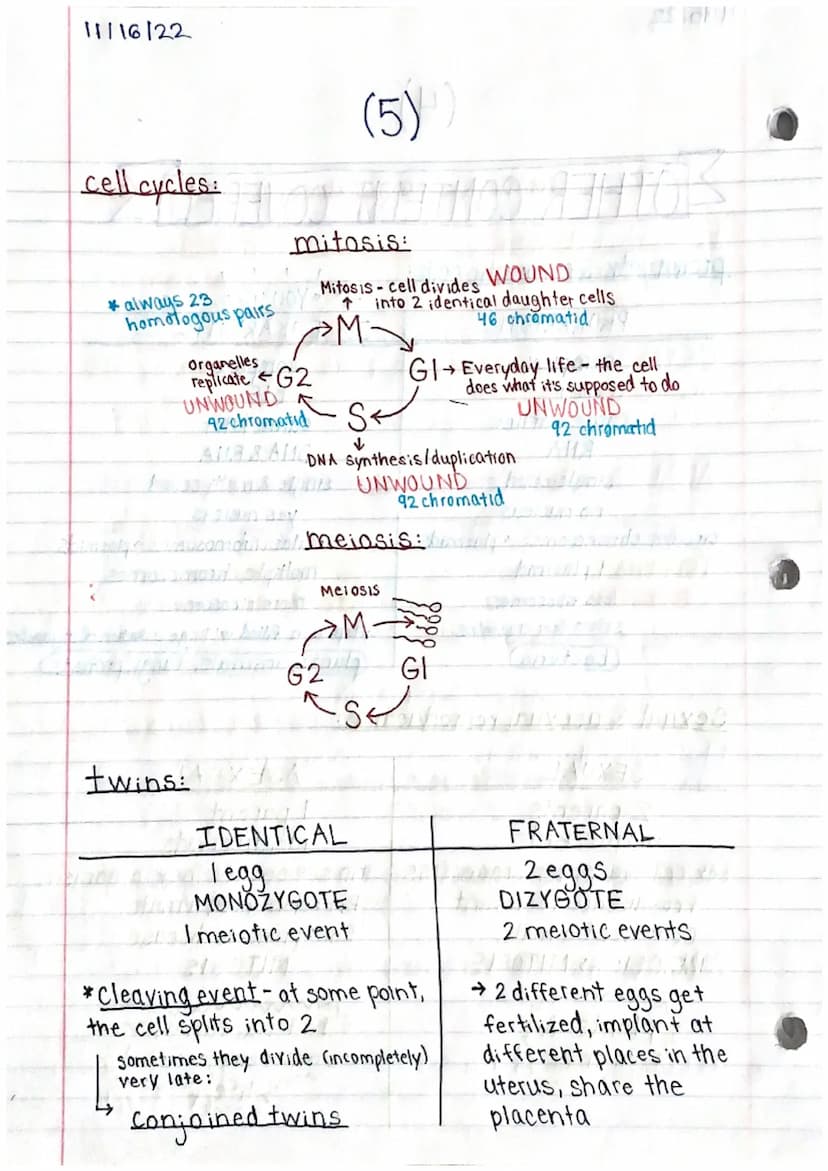 11/16/22
(5)
cell cycles:
mitosis:
* always 23
homologous pairs
Mitosis - cell divides WOUND
↑ into 2 identical daughter cells
46 chromatid
M
organelles
replicate ← G2
UNWOUND
92 chromatid
G1 → Everyday life - the cell
does what it's supposed to do
UNWOUND
92 chromatid
S
↓
DNA synthesis/duplication
UNWOUND
92 chromatid
meiosis:
Meiosis
M
G2 G1
S
twins:
IDENTICAL
1 egg
MONOZYGOTE
1 meiotic event
* Cleaving event - at some point,
the cell splits into 2
sometimes they divide (incompletely)
very late:
conjoined twins
FRATERNAL
2 eggs
DIZYGOTE
2 meiotic events
→ 2 different eggs get
fertilized, implant at
different places in the
uterus, share the
placenta